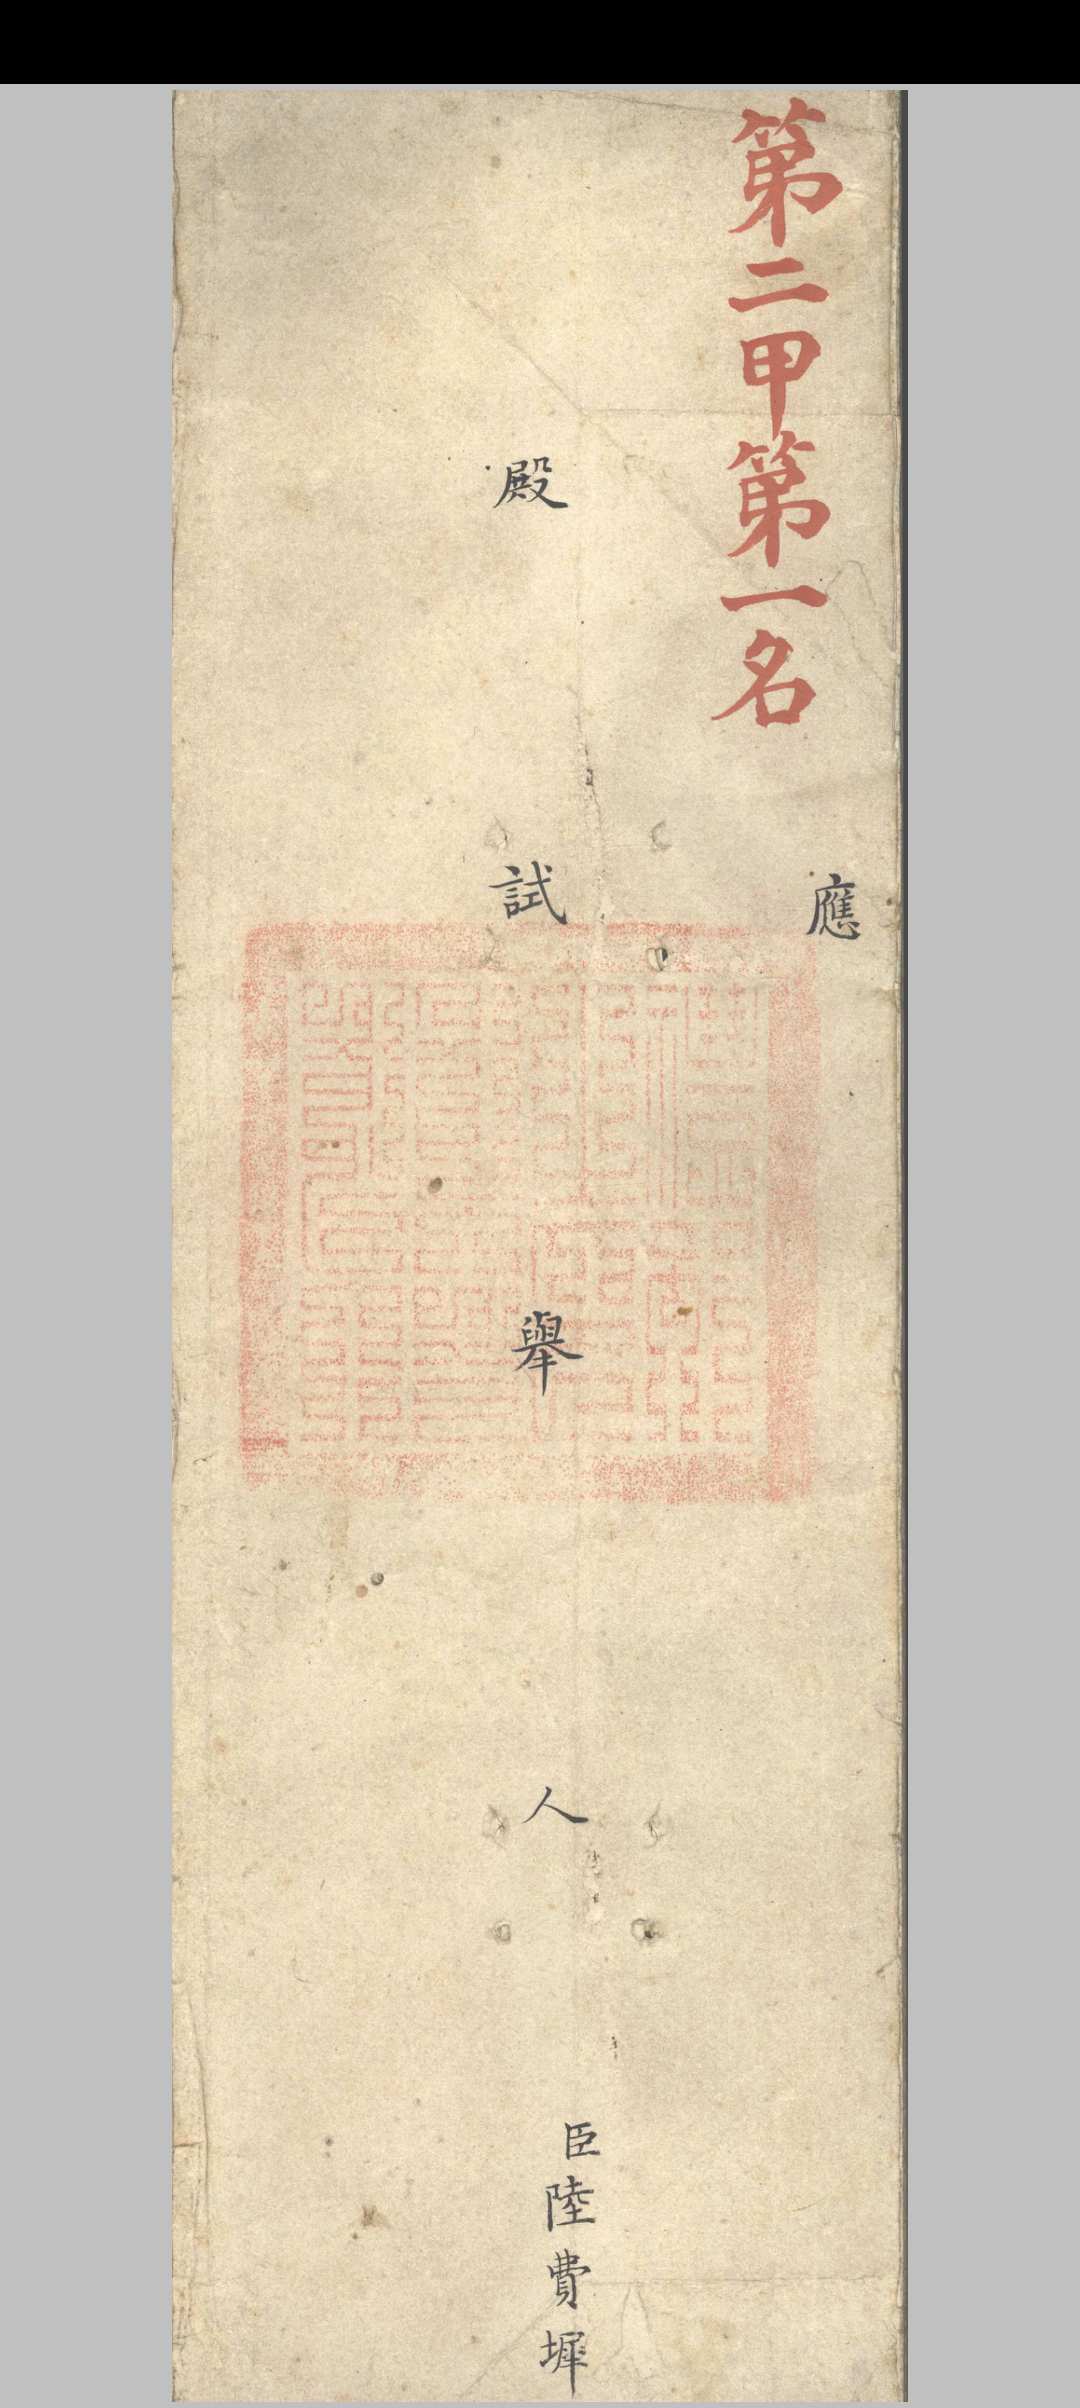 第二甲第一名
應
殿試舉人臣陸費墀